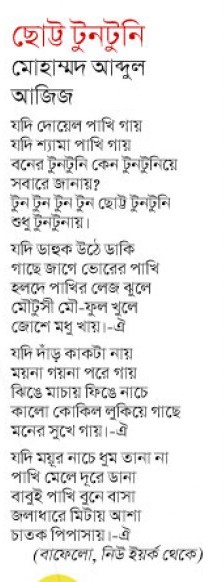 ছোট্ট টুনটুনি
মোহাম্মদ আব্দুল
আজিজ
যদি দোয়েল পাখি গায়
যদি শ্যামা পাখি গায়
বনের টুনটুনি কেন টুনটুনিয়ে
সবারে জানায়?
টুন টুন টুন টুন ছোট্ট টুনটুনি
শুধু টুনটুনায়।
যদি ডাহুক উঠে ডাকি
গাছে জাগে ভোরের পাখি
হলদে পাখির লেজ ঝুলে
মৌটুসী মৌ-ফুল খুলে
জোশে মধু খায়।-ঐ
যদি দাঁড় কাকটা নায়
ময়না গয়না পরে গায়
ঝিঙে মাচায় ফিঙে নাচে
কালো কোকিল লুকিয়ে গাছে
মনের সুখে গায়।-ঐ
যদি ময়ূর নাচে ধুম তানা না
পাখি মেলে দূরে ডানা
বাবুই পাখি বুনে বাসা
জলাধারে মিটায় আশা
চাতক পিপাসায়।-ঐ
(বাফেলো, নিউ ইয়র্ক থেকে)